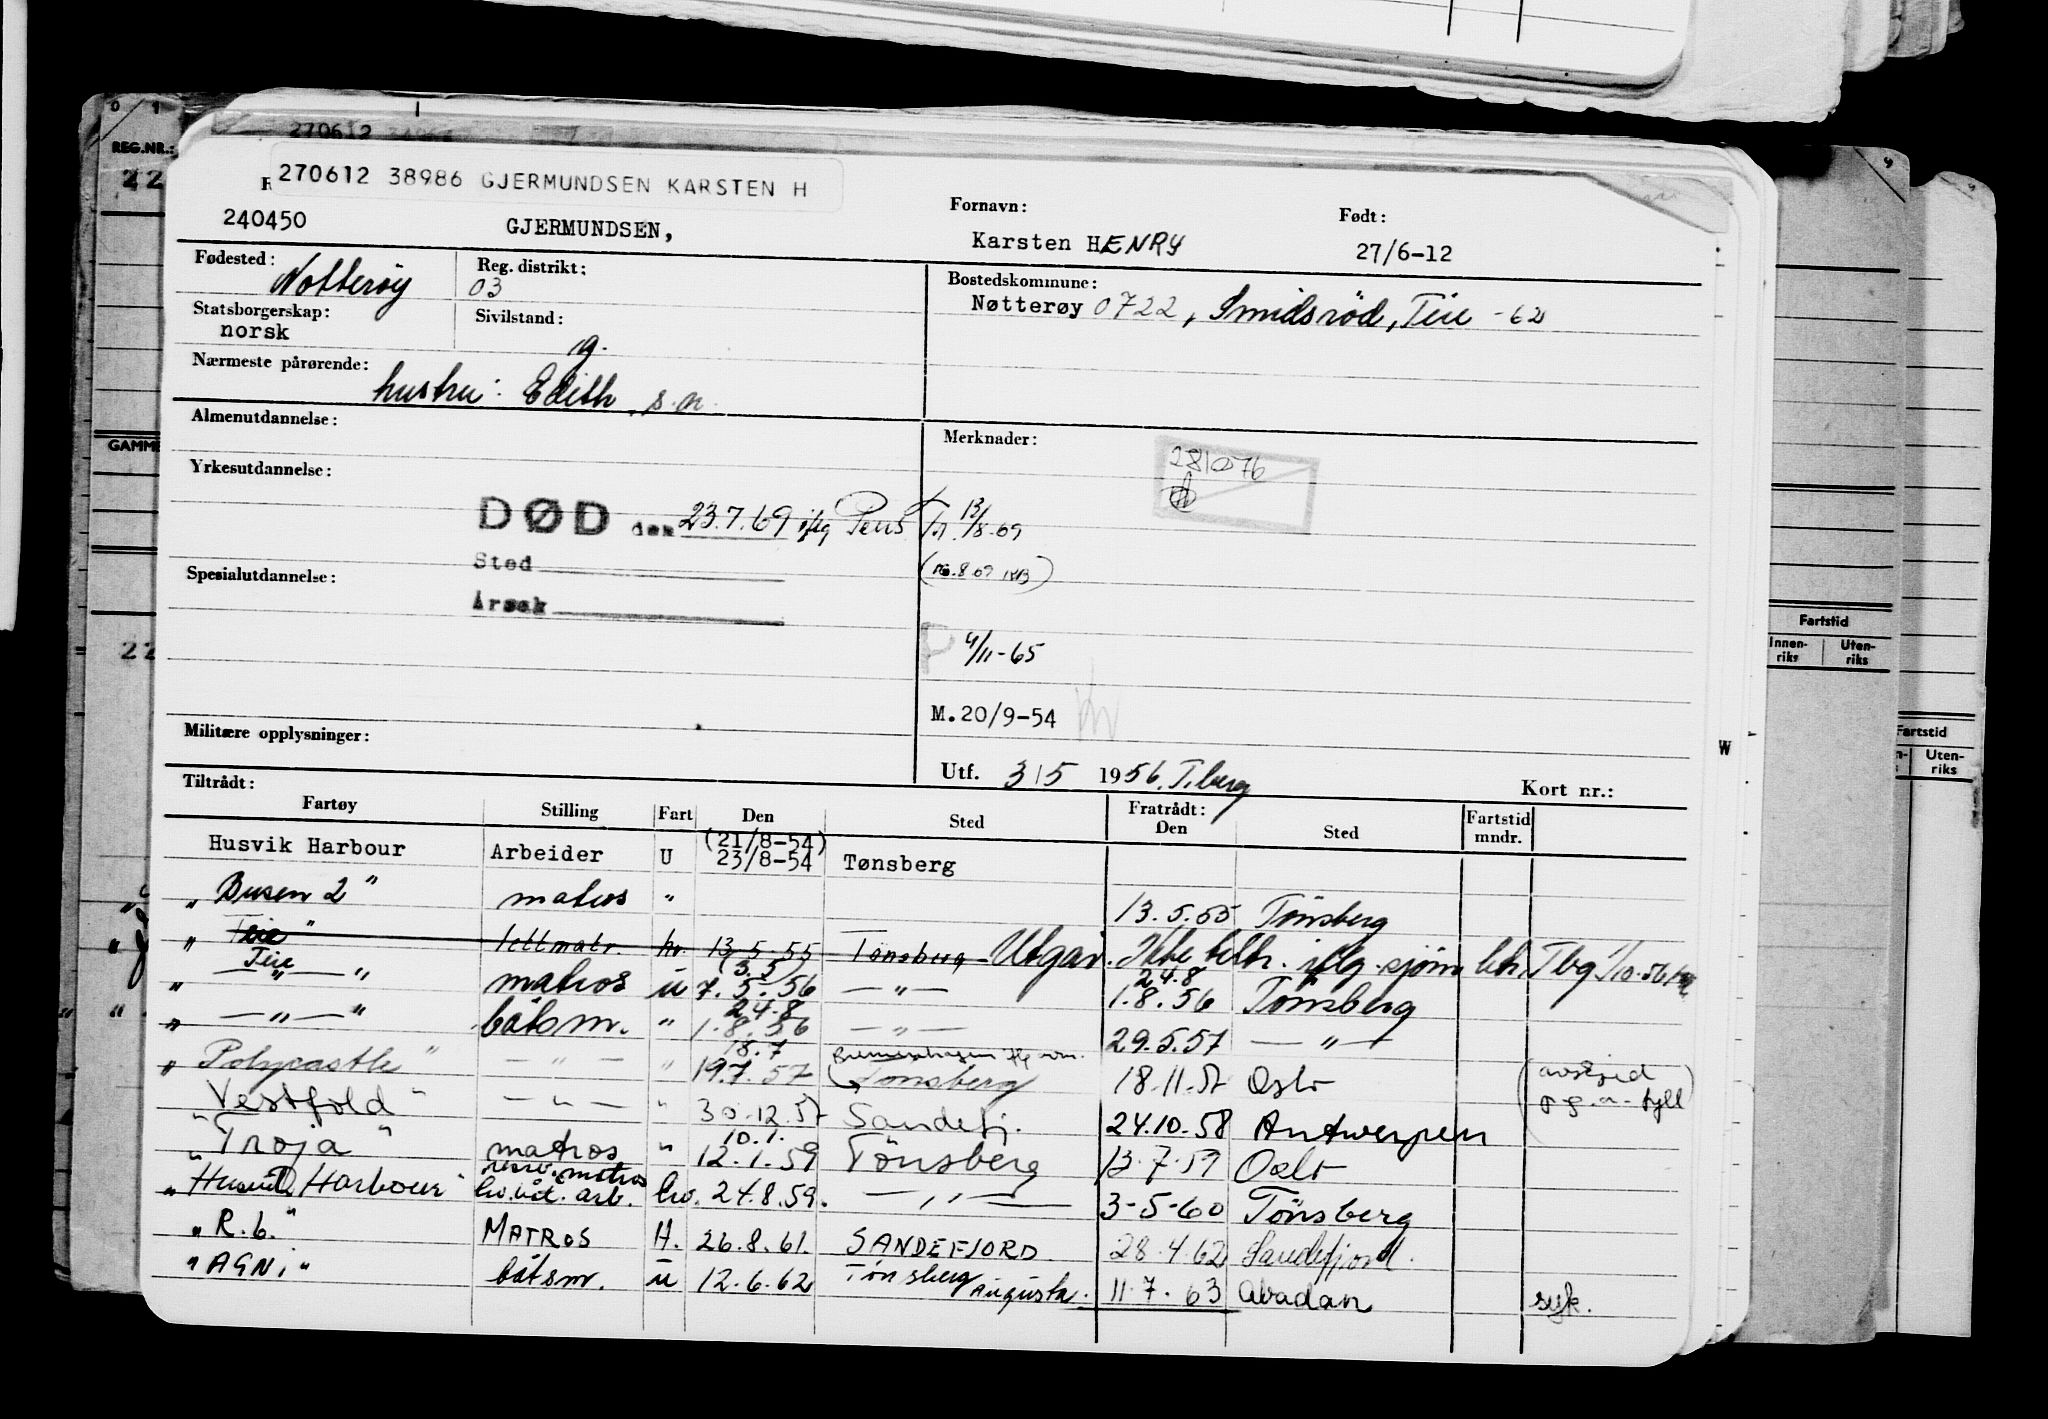 0 1
270612
REG.NR.:
22
270612 38986 GJERMUNDSEN KARSTEN H
240450 GJERMUNDSEN,
Fornavn: Karsten HENRY
Født: 27/6-12
Fødested: Nøtterøy
Reg. distrikt: 03
Bostedskommune:
Nøtterøy 0722, Smidsrød, Teie -62
Statsborgerskap: norsk
Sivilstand: g.
Nærmeste pårørende:
hustru: Edith s.n.
Almenutdannelse:
Merknader:
281076
Yrkesutdannelse:
DØD den 23.7.69 iflg Pens Tr. 13/8-69
Sted
Årsak
Spesialutdannelse:
4/11-65
M.20/9-54
Militære opplysninger:
Utf. 3/5 1956, T.berg
Kort nr.:
Tiltrådt:
Fartøy Stilling Fart Den Sted Fratrådt: Den Sted Fartstid mndr.
(21/8-54)
Husvik Harbour Arbeider U 23/8-54 Tønsberg
" Busen 2 " matros " 13.5.55 Tönsberg
" Teie " lettmatr. hv. 13.5.55 Tønsberg - Utgår. Ikke tiltr. iflg. sjøm. bk. Tbg 1/10-56
(3.5) 24.8
" Teie " matros u 7.5.56 — " — 1.8.56 Tönsberg
24.8
" — " — " båtsm. " 1.8.56 — " — 29.5.57 — " —
18.7
" Polycastle " — " — " 19.7.57 Tönsberg 18.11.57 Oslo
" Vestfold " — " — " 30.12.57 Sandefj. 24.10.58 Antwerpen
10.1.
" Troja " matros " 12.1.59 Tönsberg 13.7.59 Oslo
" Husvik Harbour " matros arb. hv. 24.8.59. — " — 3-5-60 Tönsberg
" R.6. " MATROS H. 26.8.61. SANDEFJORD 28.4.62 Sandefjord.
" AGNI " båtsm. u 12.6.62 Tönsberg Augusta. 11.7.63 Abadan syk.
GAMME
22
W
Fartstid
Innen-riks Uten-riks
Fartstid
Uten-riks